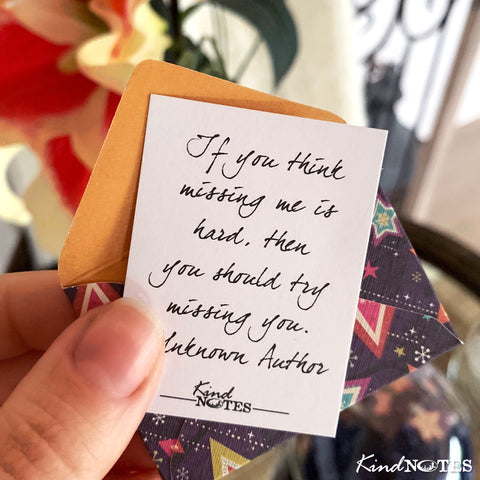 KindNOTES
If you think
missing me is
hard, then
you should try
missing you.
Unknown Author
Kind
NOTES
KindNOTES